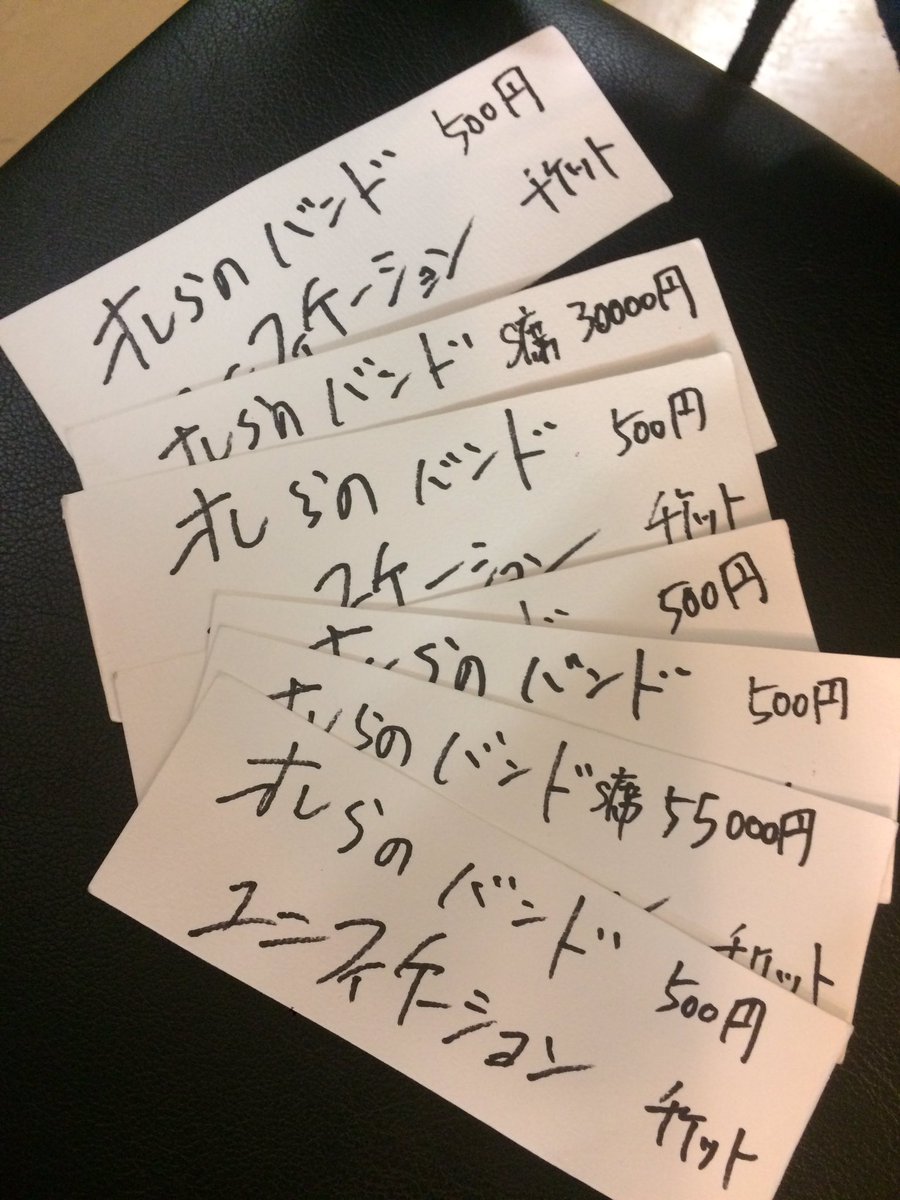 オレらのバンド 500円
フィケーション チケット
オレらのバンド S席 30000円
オレらのバンド 500円
ケーション チケット
500円
オレらのバンド 500円
オレらのバンド S席 55000円
チケット
オレらのバンド 500円
ユニフィケーション チケット